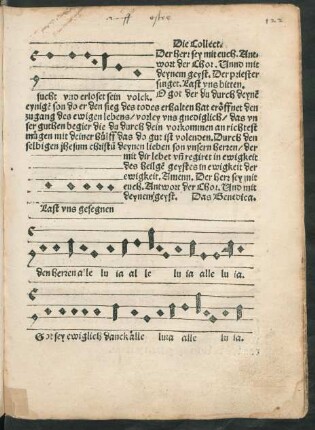 122
Die Collect.
Der herr sey mit euch. Ant-
wort der Chor. Unnd mit
deynem geyst. Der priester
singet. Last vns bitten.
sucht vnd erloset sein volck. O got der du durch deynē
eynigē son do er den sieg des todes erhalten hat eröffnet den
zugang des ewigen lebens/ vorley vns gnediglich/ das vn
ser guthen begir die du durch dein vorkommen an richtest
mögen mit deiner hülff das do gut ist volenden. Durch den
selbigen jhesum christū deynen lieben son vnsern herren/ der
mit dir lebet vñ regiret in ewigkeit
des heilgē geystes in ewigkeit der
ewigkeit. Amenn. Der herr sey mit
euch. Antwort der Chor. Vnd mit
deynem geyst. Das Benedica.
Last vns gesegnen
den herren alle lu ia al le lu ia alle lu ia.
Got sey ewiglich danck alle luia alle lu ia.